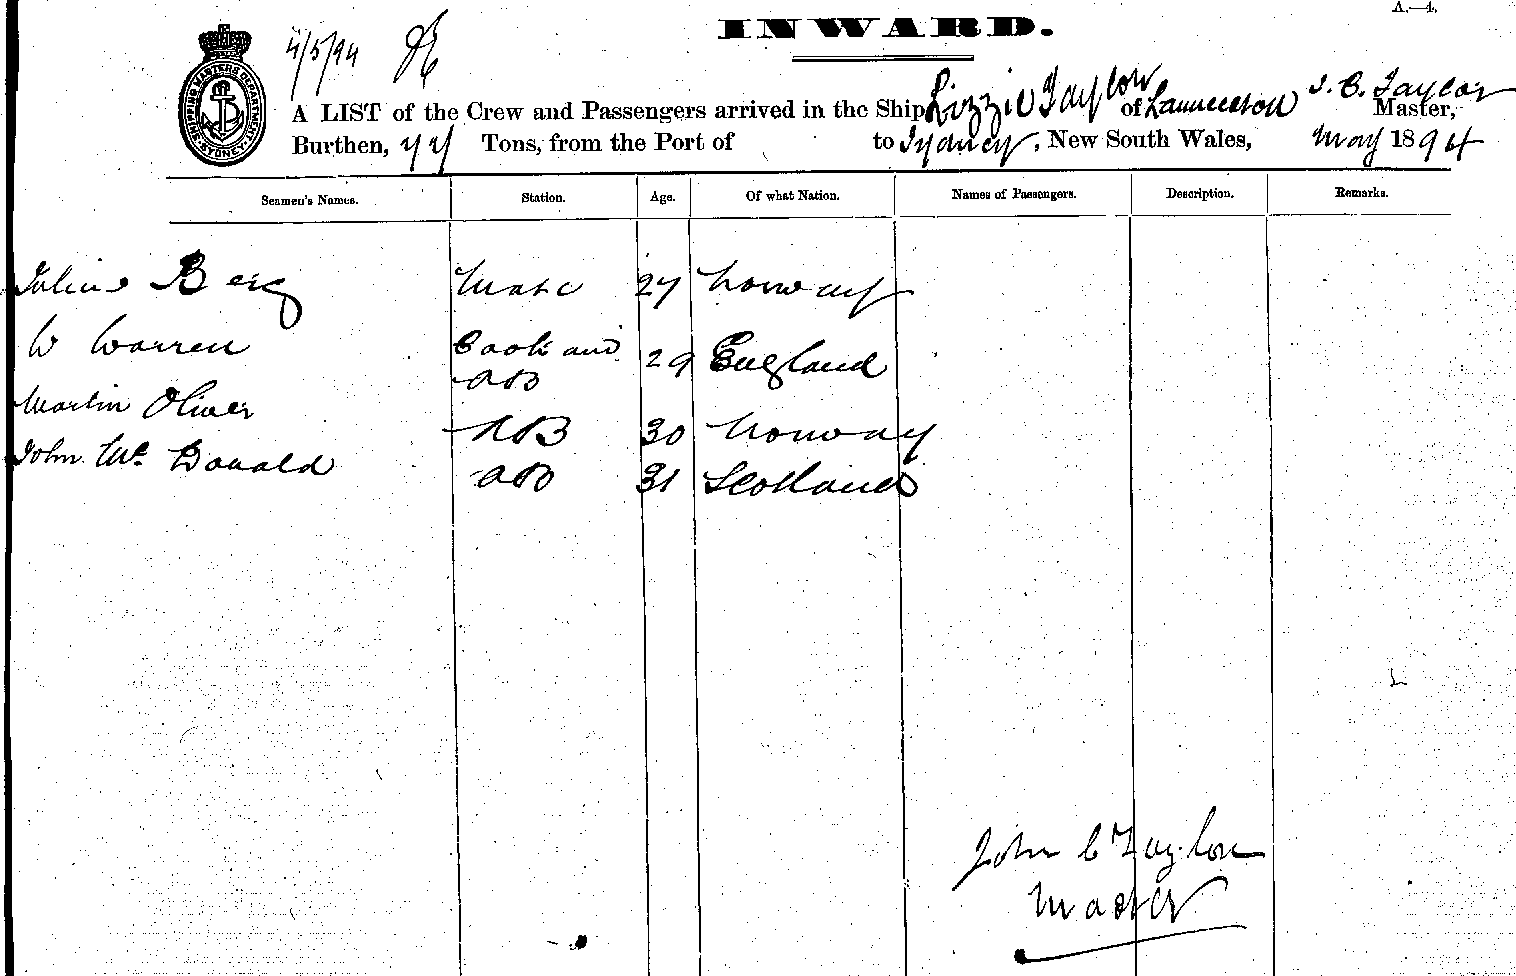 A.—4.
INWARD.
SHIPPING MASTERS DEPARTMENT SYDNEY
4/5/94
A LIST of the Crew and Passengers arrived in the Ship Lizzie Taylor of Launceston J. C. Taylor Master,
Burthen, 74 Tons, from the Port of to Sydney, New South Wales, May 1894
Seamen's Names. Station. Age. Of what Nation. Names of Passengers. Description. Remarks.
Julius Berg Mate 27 Norway
W Warren Cook and AB 29 England
Martin Oliver AB 30 Norway
John Mc Donald AB 31 Scotland
John C Taylor
Master